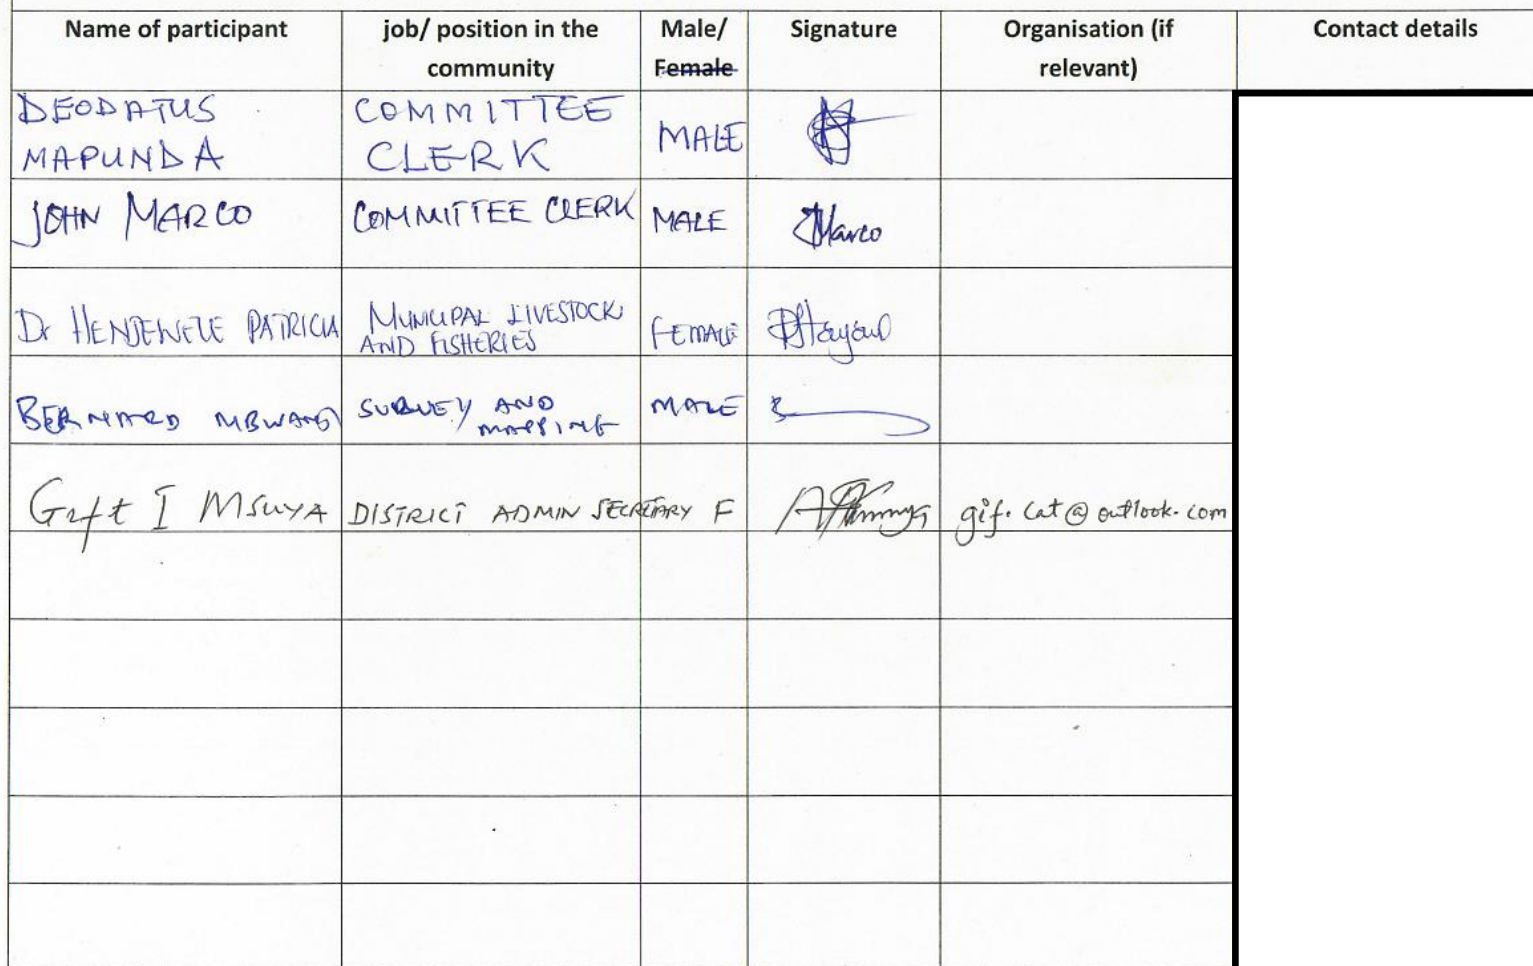 Name of participant job/ position in the community Male/ Female Signature Organisation (if relevant) Contact details
DEODATUS MAPUNDA COMMITTEE CLERK MALE
JOHN MARCO COMMITTEE CLERK MALE Marco
Dr HENJEWELE PATRICIA MUNICIPAL LIVESTOCK AND FISHERIES FEMALE
BERNARD SURVEY AND MAPPING MALE
Gift I MSUYA DISTRICT ADMIN SECRETARY F gif.cat@outlook.com